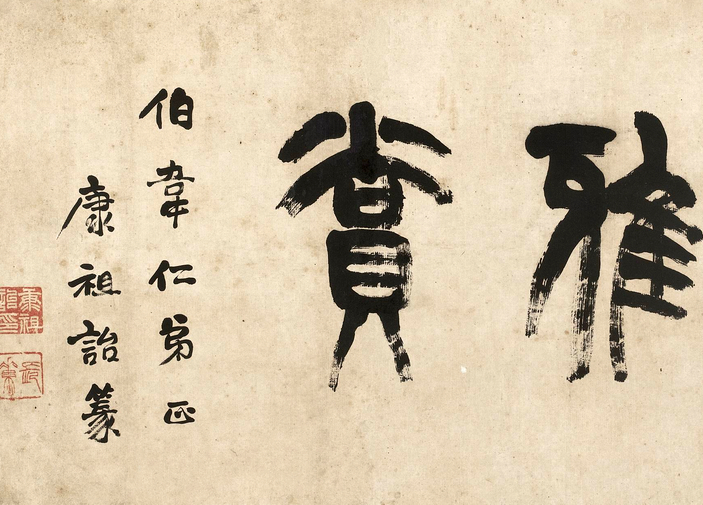 雅賞
伯韋仁弟正
康祖詒篆
康祖詒印